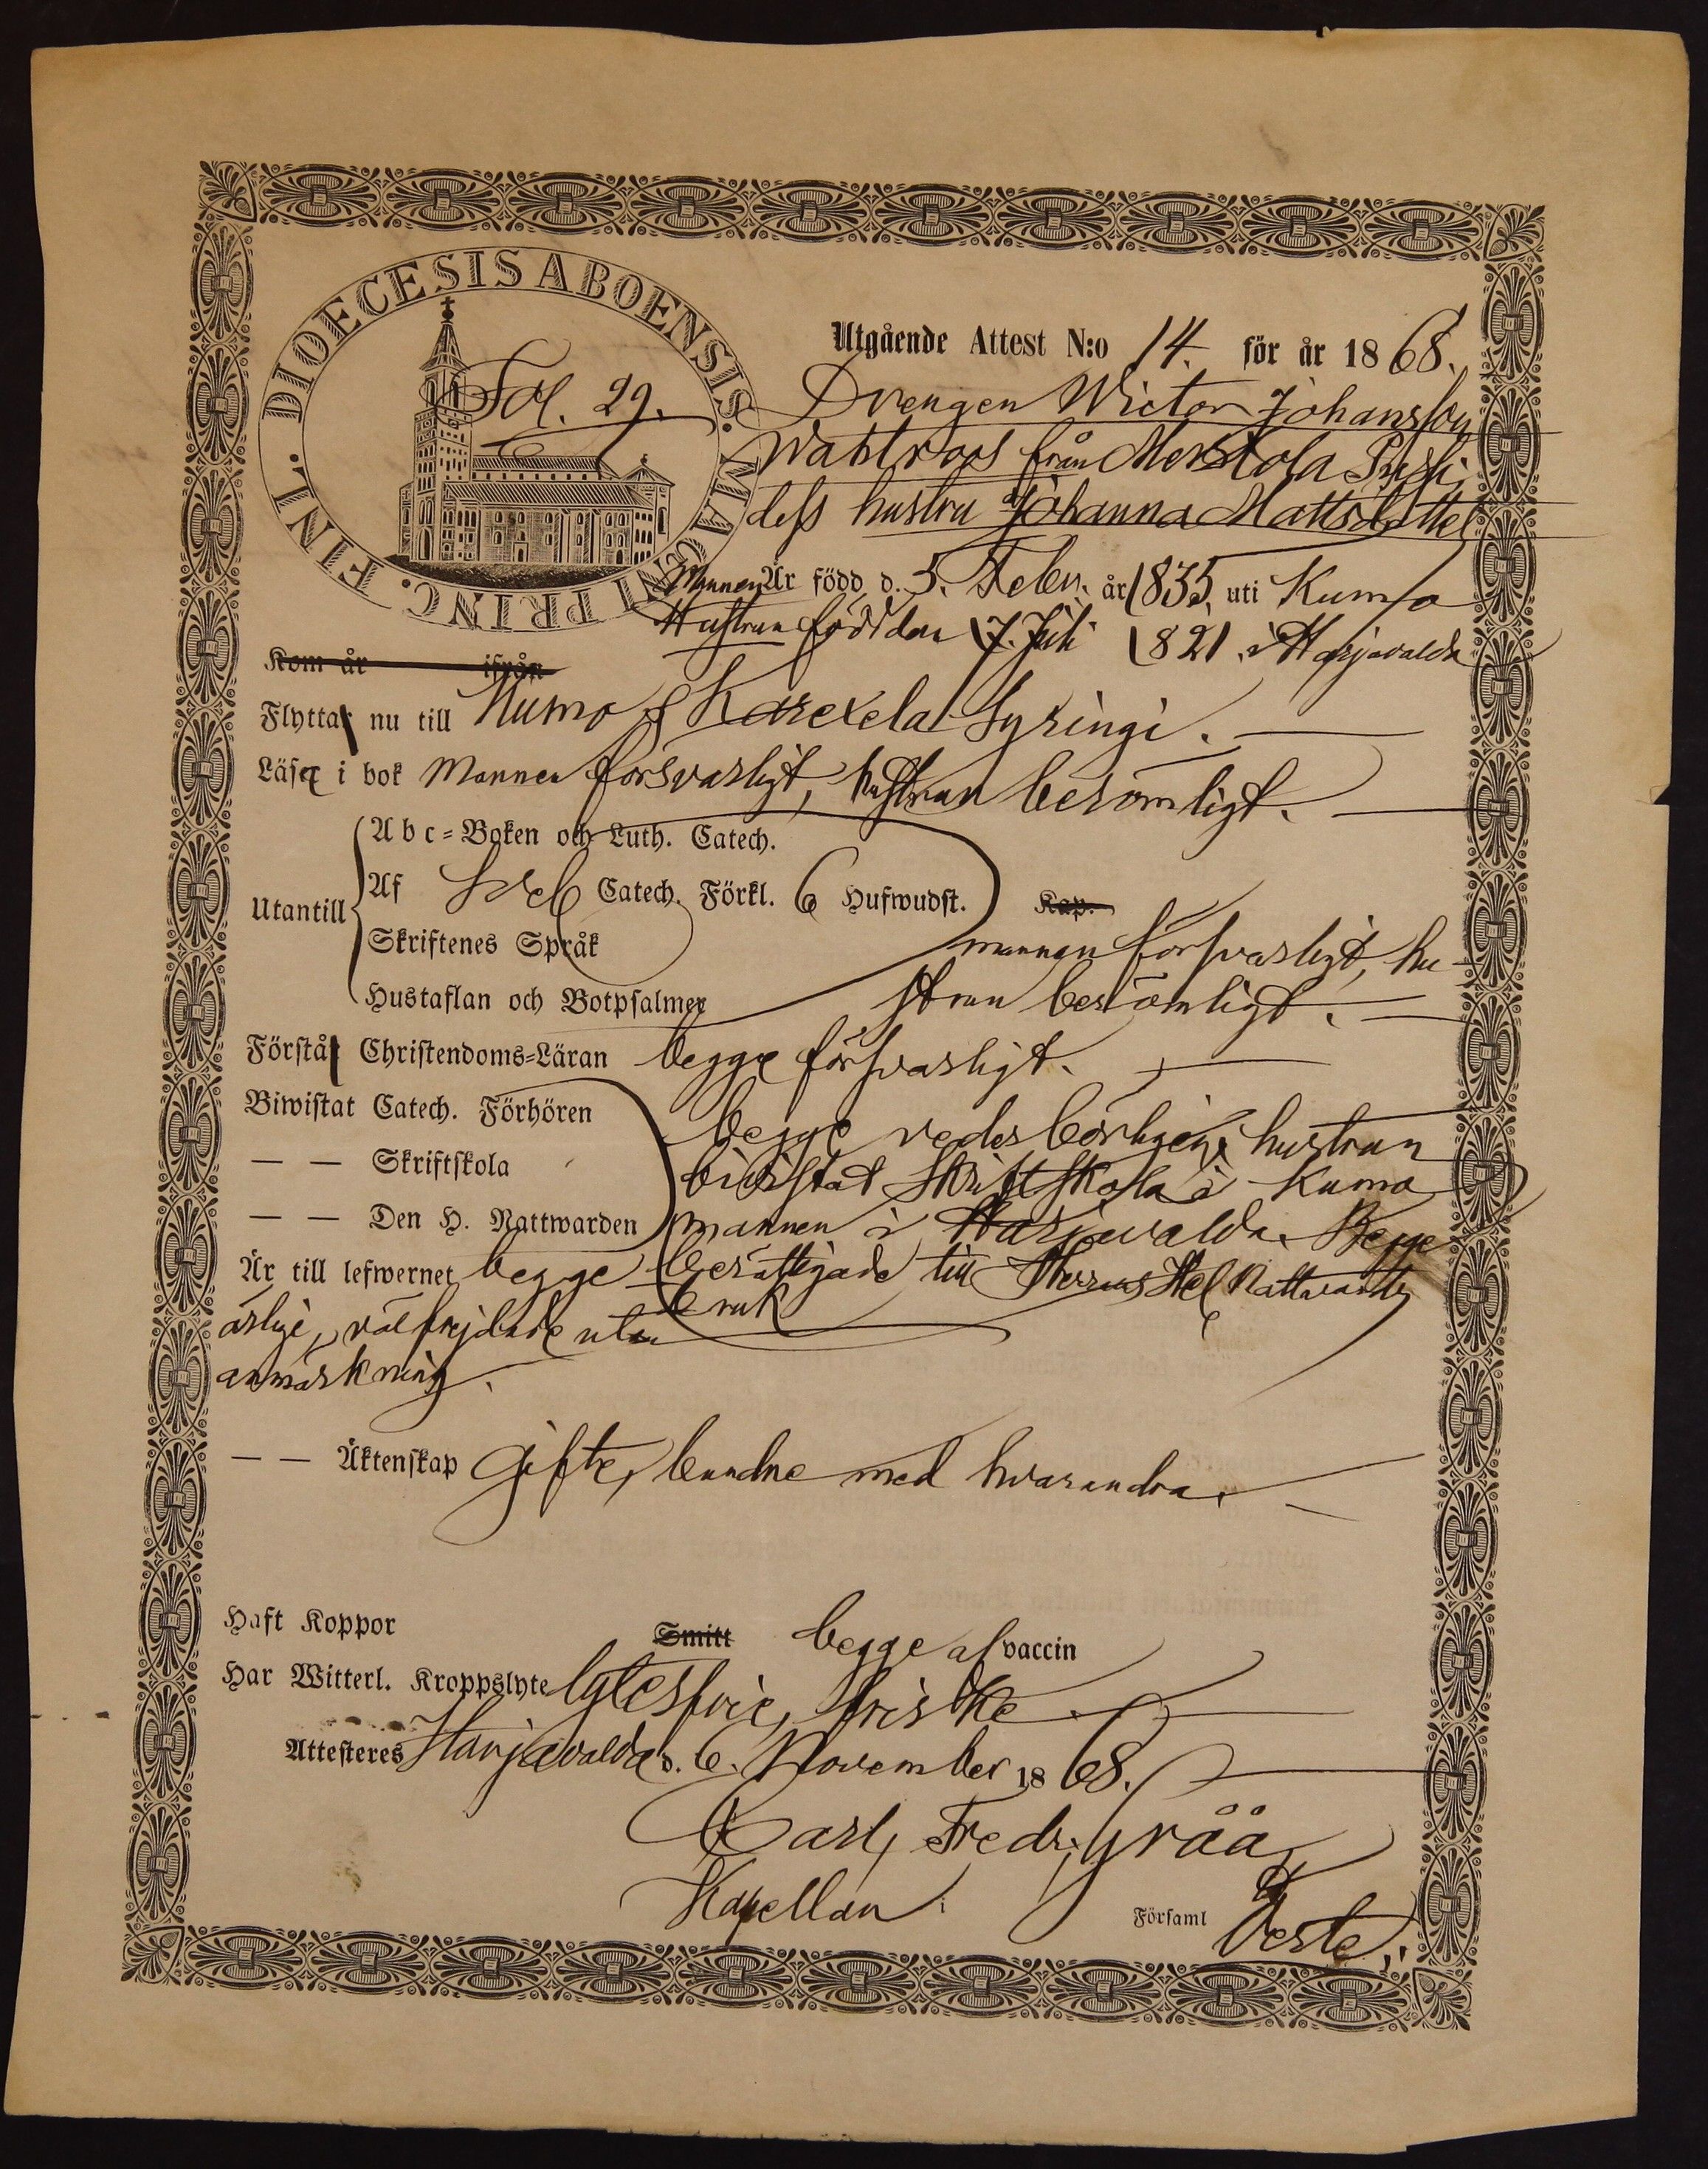 DIOECESIS ABOENSIS. MAGNI PRINC. FINL.
Fol. 29.
Utgående Attest N:o 14. för år 1868.
Drengen Wictor Johansson
Wahlroos från Merstola
dess hustru Johanna Mattsdotter
Mannen Är född d. 5. Febr. år 1835, uti Kumo
Hustrun född den 7. Juli 1821. i Harjavalda
Kom år ifrån
Flytta nu till Kumo Syringi.
Läsa i bok Mannen försvarligt, hustrun berömligt.
Utantill
Abc-Boken och Luth. Catech.
Af Catech. Förkl. 6 Hufwudst. Kap.
Skriftenes Språk mannen försvarligt, hu-
Hustaflan och Botpsalmer strun berömligt.
Förstå Christendoms-Läran begge försvarligt.
Biwistat Catech. Förhören begge vederbörligen, hustrun
— — Skriftskola bivistat Skriftskola i Kumo
— — Den H. Nattwarden mannen i Harjavalda. Begge
Är till lefwernet begge berättigade till Herrans Hel. Nattvards
bruk
ärlige, välfrejdade utan
anmärkning.
— — Äktenskap Gifte, bundne med hvarandra.
Haft Koppor Smitt begge af vaccin
Har Witterl. Kroppslyte lytesfrie, friske
Attesteres Harjavalda d. 6. November 1868.
Carl Fredr. Gråå
Kapellan
Församl